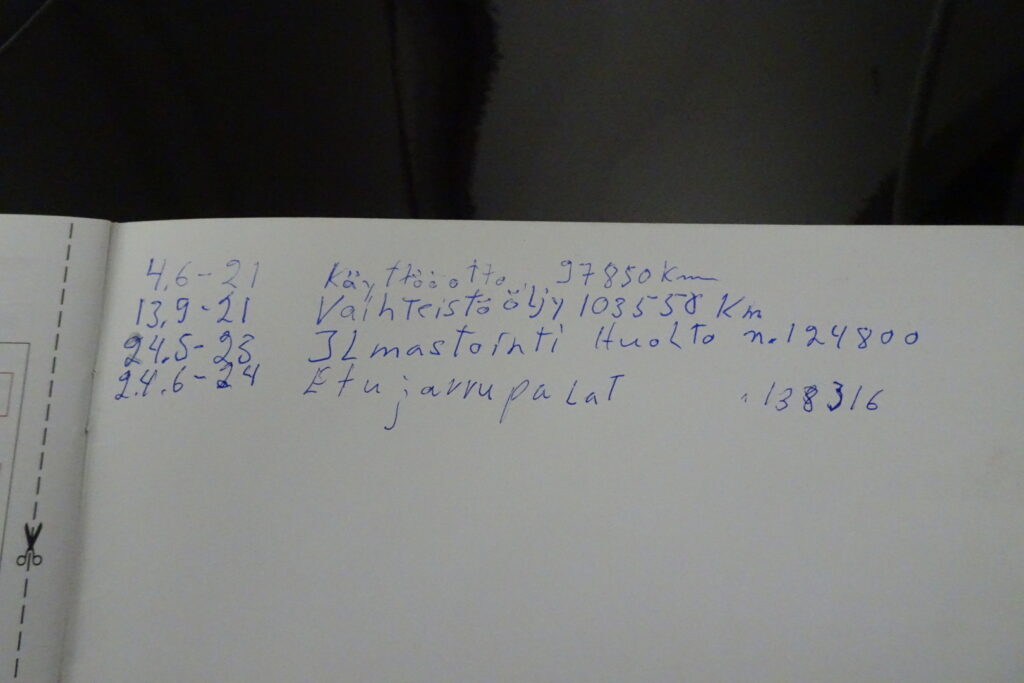 4.6-21 Käyttööotto 97850 km
13.9-21 Vaihteistööljy 103558 Km
24.5-23 ILmastointi Huolto n.124800
24.6-24 Etujarrupalat 138316